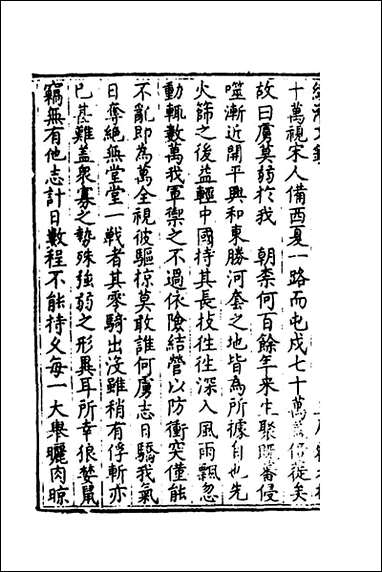 十萬視宋人備西夏一路而屯戍七十萬
徙矣
故曰虜莫弱於我 朝柰何百餘年来生聚既蕃侵
噬漸近開平興和東勝河套之地皆為所據自也先
火篩之後益輕中國持其長技往往深入風雨飄忽
動輒數萬我軍禦之不過依險結營以防衝突僅能
不亂即為萬全視彼驅掠莫敢誰何虜志日驕我氣
日奪絕無堂堂一戰者其零騎出沒雖稍有俘斬亦
已甚難蓋衆寡之勢殊強弱之形異耳所幸狼婪鼠
竊無有他志計日數程不能持久每一大舉曬肉晾